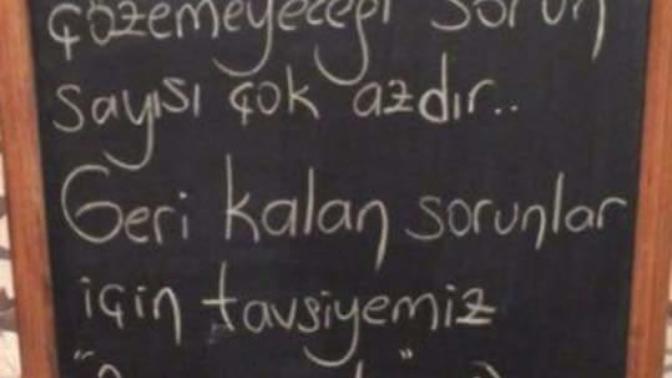 çözemeyeceği sorun
sayısı çok azdır..
Geri kalan sorunlar
için tavsiyemiz